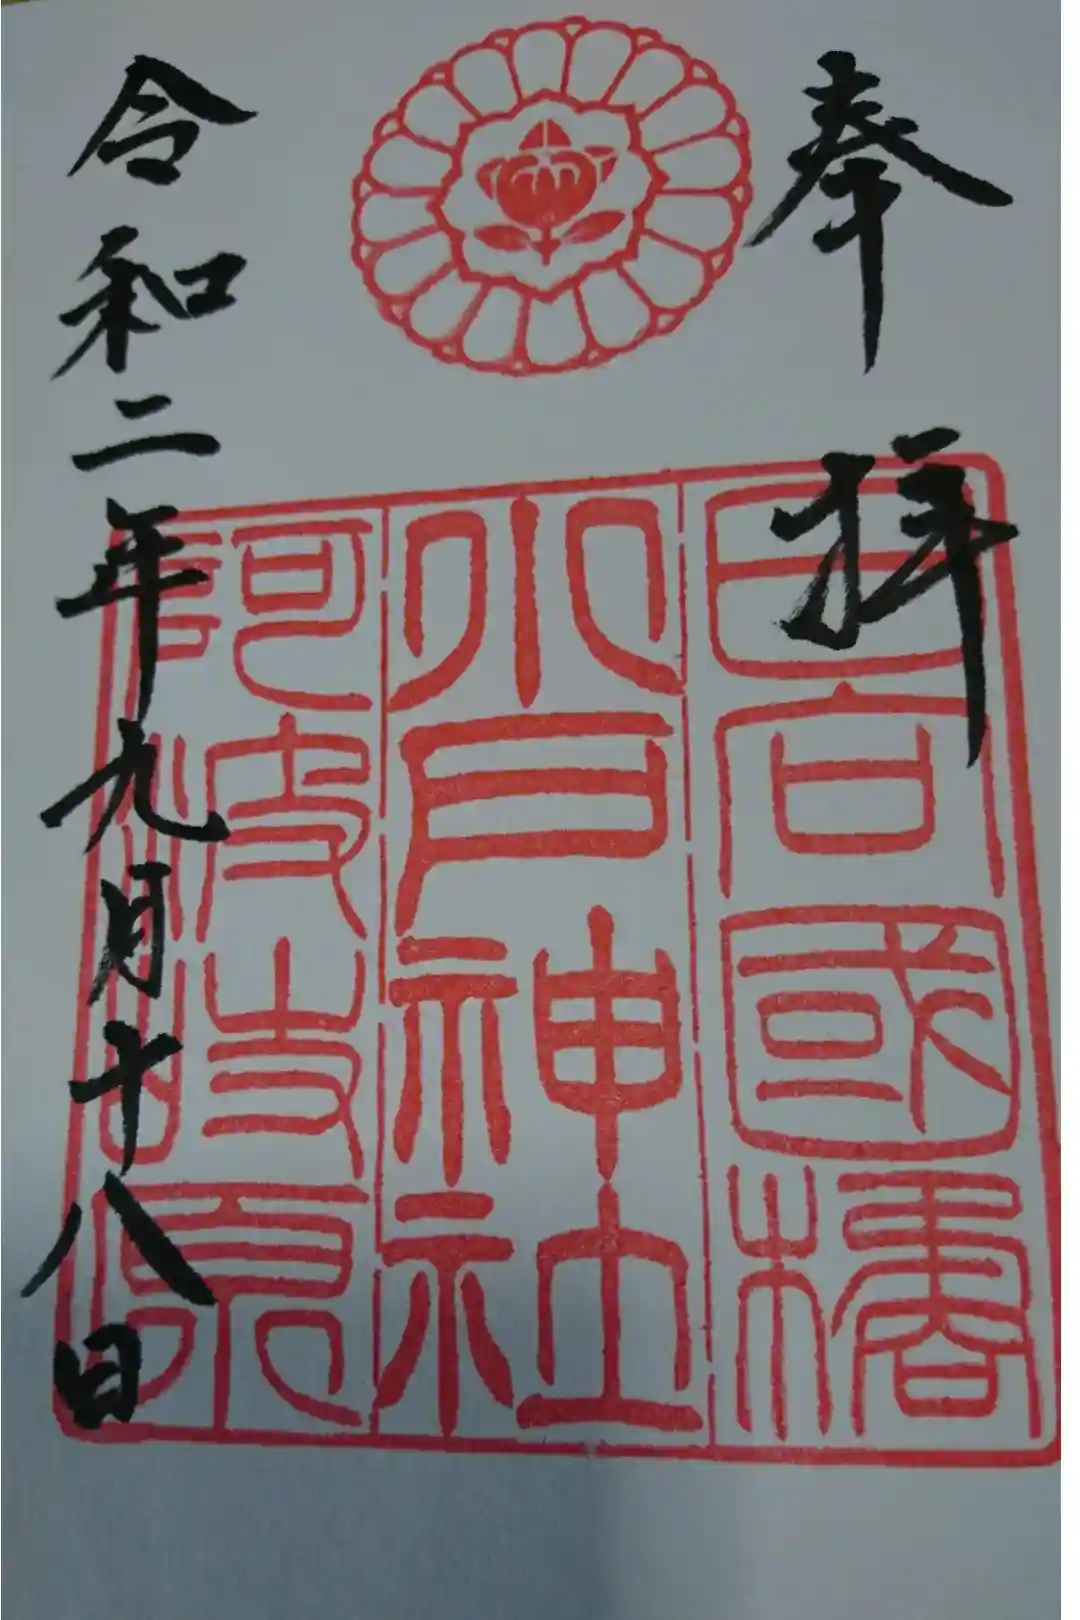 奉拝
日向國橘
小戸神社
阿波岐原
令和二年九月十八日